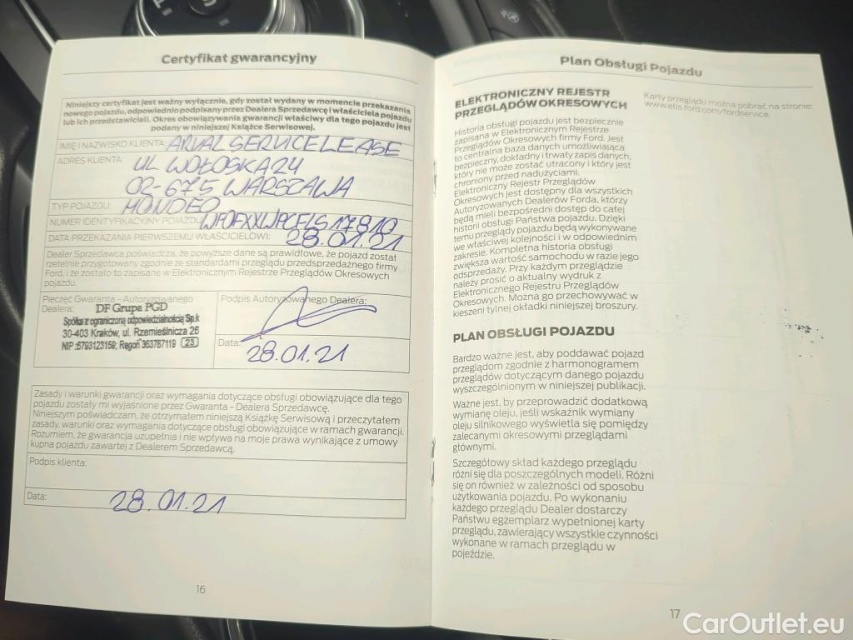 Certyfikat gwarancyjny
Niniejszy certyfikat jest ważny wyłącznie, gdy został wydany w momencie przekazania
nowego pojazdu, odpowiednio podpisany przez Dealera Sprzedawcę i właściciela pojazdu
lub ich przedstawicieli. Okres obowiązywania gwarancji właściwy dla tego pojazdu jest
podany w niniejszej Książce Serwisowej.
IMIĘ I NAZWISKO KLIENTA: ARVAL SERVICE LEASE
ADRES KLIENTA: UL WOŁOSKA 24
02-675 WARSZAWA
TYP POJAZDU: MONDEO
NUMER IDENTYFIKACYJNY POJAZDU:
DATA PRZEKAZANIA PIERWSZEMU WŁAŚCICIELOWI: 28.01.21
Dealer Sprzedawca poświadcza, że powyższe dane są prawidłowe, że pojazd został
rzetelnie przygotowany zgodnie ze standardami przeglądu przedsprzedażnego firmy
Ford, i że zostało to zapisane w Elektronicznym Rejestrze Przeglądów Okresowych
pojazdu.
Pieczęć Gwaranta - Autoryzowanego
Dealera:
DF Grupa PGD
Spółka z ograniczoną odpowiedzialnością Sp.k
30-403 Kraków, ul. Rzemieślnicza 26
NIP :6793123159; Regon 363787119 23
Podpis Autoryzowanego Dealera:
Data: 28.01.21
Zasady i warunki gwarancji oraz wymagania dotyczące obsługi obowiązujące dla tego
pojazdu zostały mi wyjaśnione przez Gwaranta - Dealera Sprzedawcę.
Niniejszym poświadczam, że otrzymałem niniejszą Książkę Serwisową i przeczytałem
zasady, warunki oraz wymagania dotyczące obsługi obowiązujące w ramach gwarancji.
Rozumiem, że gwarancja uzupełnia i nie wpływa na moje prawa wynikające z umowy
kupna pojazdu zawartej z Dealerem Sprzedawcą.
Podpis klienta:
Data: 28.01.21
16
Plan Obsługi Pojazdu
ELEKTRONICZNY REJESTR
PRZEGLĄDÓW OKRESOWYCH
Historia obsługi pojazdu jest bezpiecznie
zapisana w Elektronicznym Rejestrze
Przeglądów Okresowych firmy Ford. Jest
to centralna baza danych umożliwiająca
bezpieczny, dokładny i trwały zapis danych,
który nie może zostać utracony i który jest
chroniony przed nadużyciami.
Elektroniczny Rejestr Przeglądów
Okresowych jest dostępny dla wszystkich
Autoryzowanych Dealerów Forda, którzy
będą mieli bezpośredni dostęp do całej
historii obsługi Państwa pojazdu. Dzięki
temu przeglądy pojazdu będą wykonywane
we właściwej kolejności i w odpowiednim
zakresie. Kompletna historia obsługi
zwiększa wartość samochodu w razie jego
odsprzedaży. Przy każdym przeglądzie
należy prosić o aktualny wydruk z
Elektronicznego Rejestru Przeglądów
Okresowych. Można go przechowywać w
kieszeni tylnej okładki niniejszej broszury.
PLAN OBSŁUGI POJAZDU
Bardzo ważne jest, aby poddawać pojazd
przeglądom zgodnie z harmonogramem
przeglądów dotyczącym danego pojazdu
wyszczególnionym w niniejszej publikacji.
Ważne jest, by przeprowadzić dodatkową
wymianę oleju, jeśli wskaźnik wymiany
oleju silnikowego wyświetla się pomiędzy
zalecanymi okresowymi przeglądami
głównymi.
Szczegółowy skład każdego przeglądu
różni się dla poszczególnych modeli. Różni
się on również w zależności od sposobu
użytkowania pojazdu. Po wykonaniu
każdego przeglądu Dealer dostarczy
Państwu egzemplarz wypełnionej karty
przeglądu, zawierający wszystkie czynności
wykonane w ramach przeglądu w
pojeździe.
Karty przeglądu można pobrać na stronie:
www.etis.ford.com/fordservice.
17
CarOutlet.eu